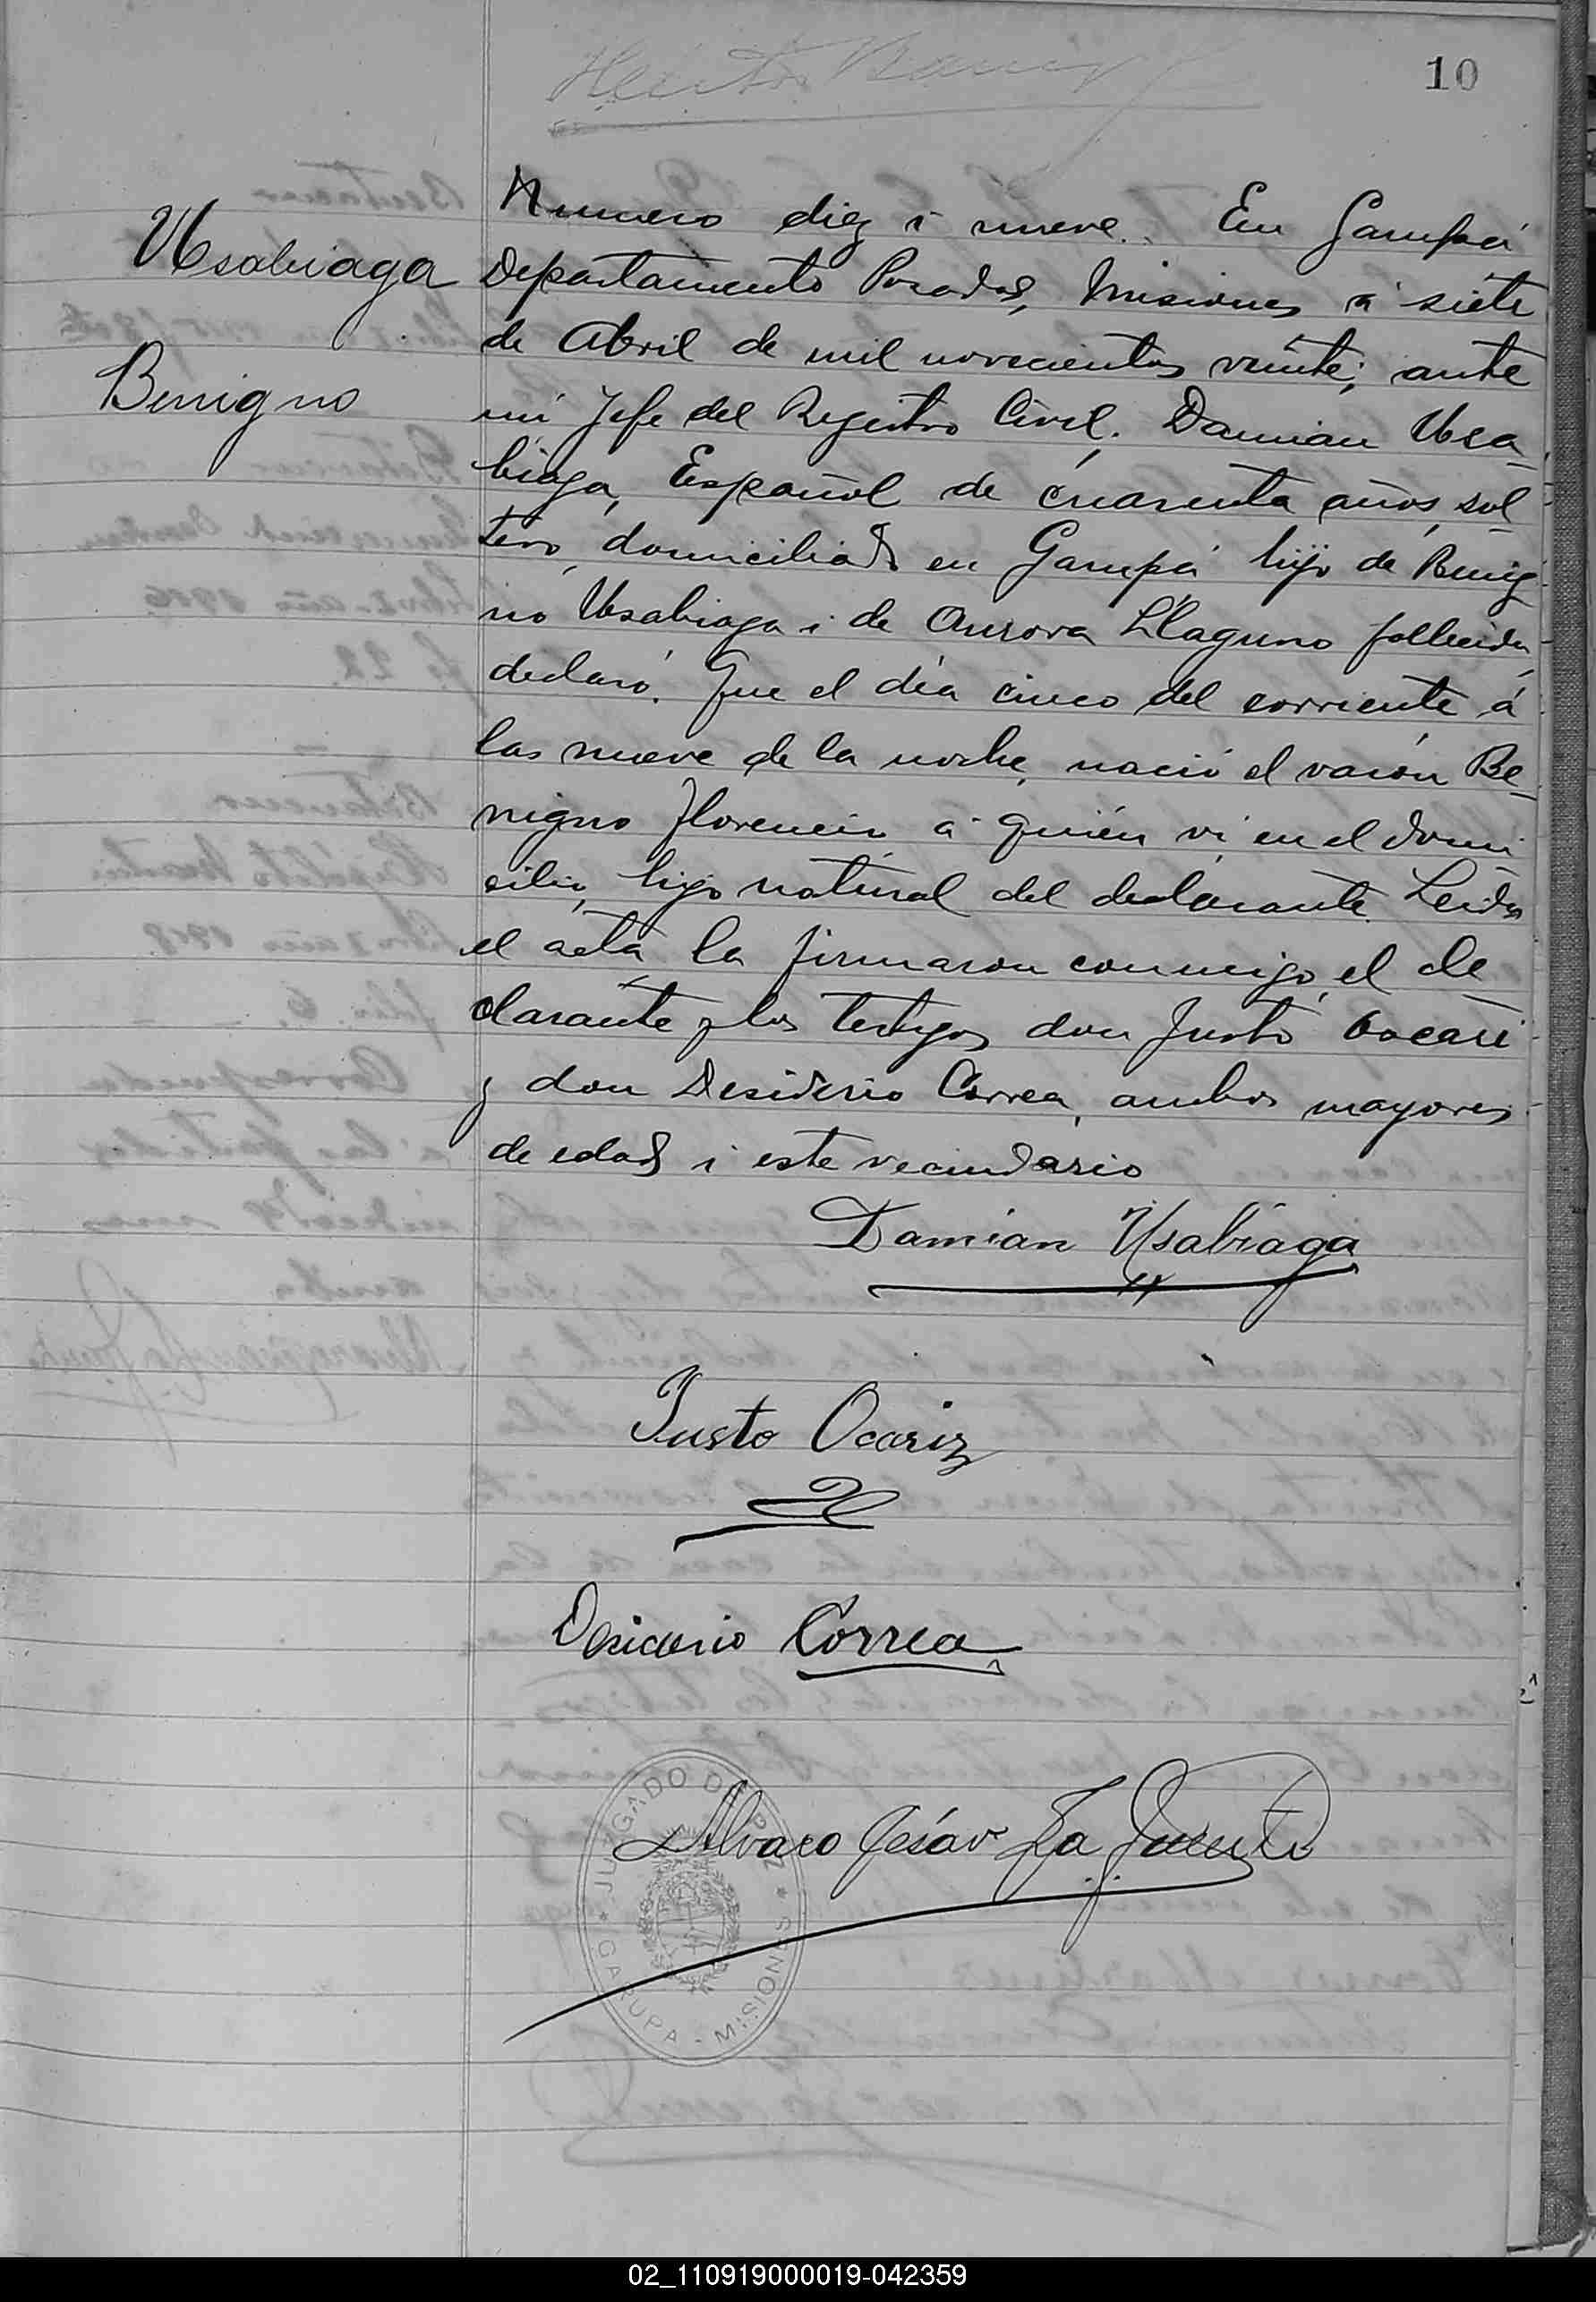 10
Usabiaga
Benigno
Numero diez i nueve. En Garupá
Departamento Posadas, Misiones á siete
de Abril de mil novecientos veinte; ante
mi Jefe del Registro Civil. Damian Usa_
biaga, Español de cuarenta años, sol_
tero, domiciliado en Garupá hijo de Benig
no Usabiaga i de Aurora Llaguno fallecida,
declaró. Que el día cinco del corriente á
las nueve de la noche, nació el varón Be_
nigno Florencio á quién vi en el domi
cilio, hijo natural del declarante. Leida
el acta la firmaron conmigo, el de
clarante y los testigos don Justo Ocari
y don Desiderio Correa, ambos mayores
de edad i este vecindario
Damian Usabiaga
Justo Ocariz
Desiderio Correa
Alvaro Jesáv La Fuente
JUZGADO DE PAZ
GARUPA - MISIONES
02_110919000019-042359